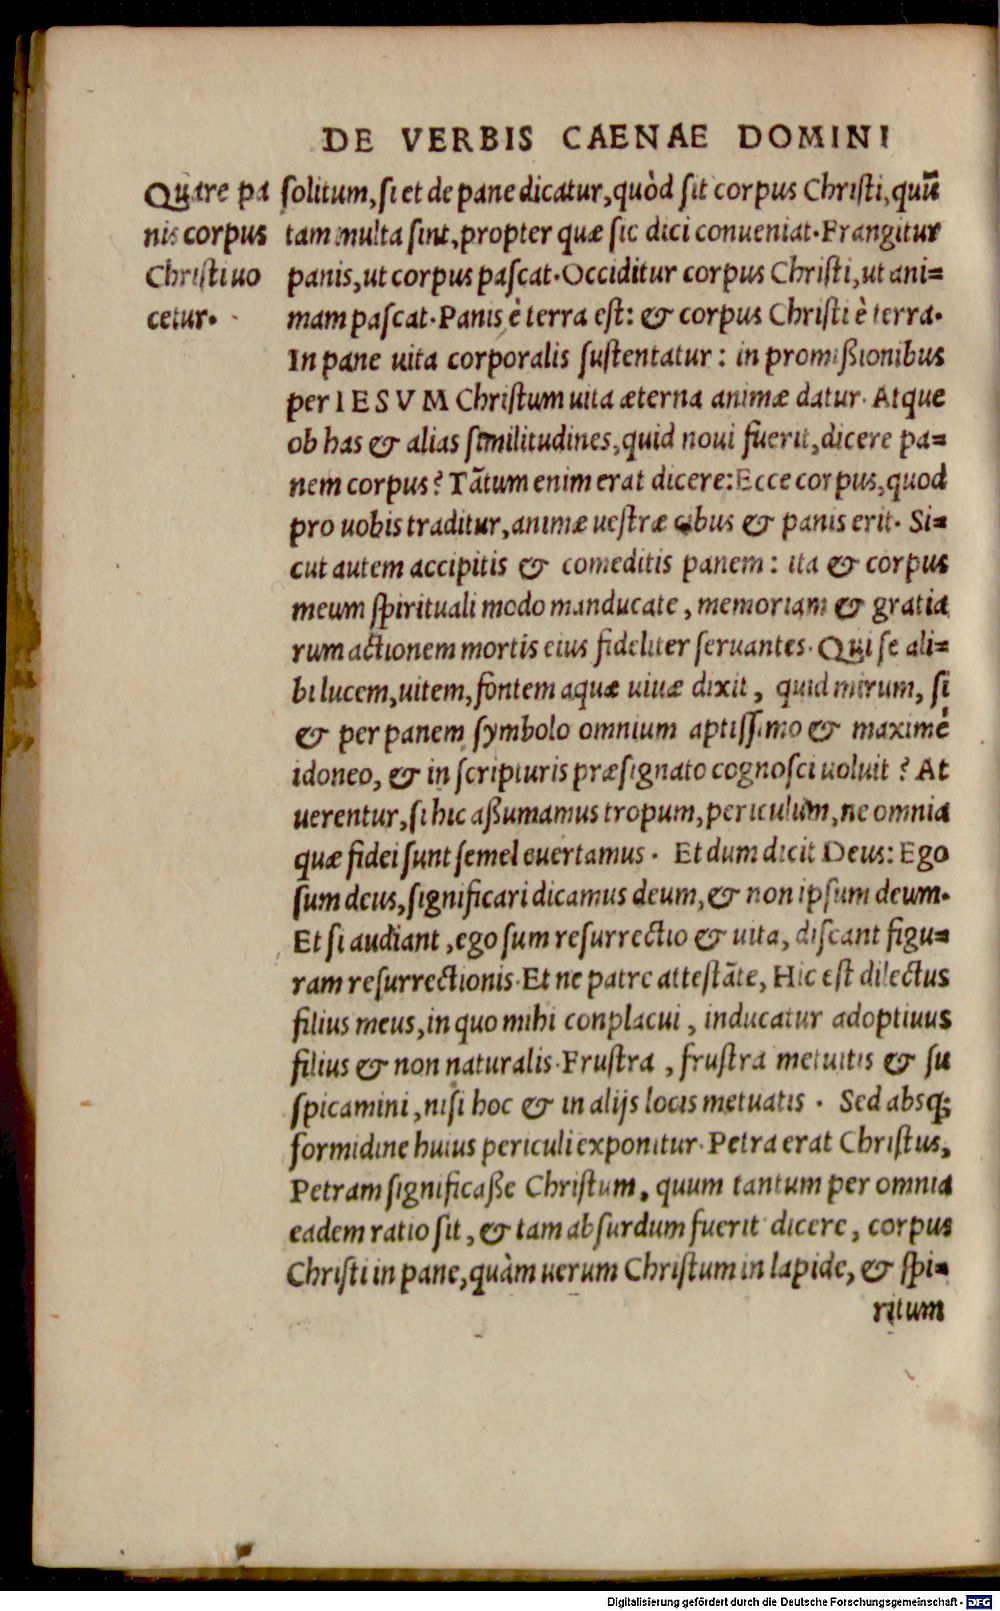 DE VERBIS CAENAE DOMINI
Quare pa
nis corpus
Christi uo
cetur.
solitum, si et de pane dicatur, quòd sit corpus Christi, quũ
tam multa sint, propter quæ sic dici conueniat. Frangitur
panis, ut corpus pascat. Occiditur corpus Christi, ut ani=
mam pascat. Panis è terra est: & corpus Christi è terra.
In pane uita corporalis sustentatur: in promißionibus
per IESVM Christum uita æterna animæ datur. Atque
ob has & alias similitudines, quid noui fuerit, dicere pa=
nem corpus? Tãtum enim erat dicere: Ecce corpus, quod
pro uobis traditur, animæ uestræ cibus & panis erit. Si=
cut autem accipitis & comeditis panem: ita & corpus
meum spirituali modo manducate, memoriam & gratia
rum actionem mortis eius fideliter seruantes. Qui se ali=
bi lucem, uitem, fontem aquæ uiuæ dixit, quid mirum, si
& per panem symbolo omnium aptissimo & maximè
idoneo, & in scripturis præsignato cognosci uoluit? At
uerentur, si hic aßumamus tropum, periculum, ne omnia
quæ fidei sunt semel euertamus. Et dum dicit Deus: Ego
sum deus, significari dicamus deum, & non ipsum deum.
Et si audiant, ego sum resurrectio & uita, discant figu=
ram resurrectionis. Et ne patre attestãte, Hic est dilectus
filius meus, in quo mihi conplacui, inducatur adoptiuus
filius & non naturalis. Frustra, frustra metuitis & su
spicamini, nisi hoc & in alijs locis metuatis. Sed absq;
formidine huius periculi exponitur. Petra erat Christus,
Petram significaße Christum, quum tantum per omnia
eadem ratio sit, & tam absurdum fuerit dicere, corpus
Christi in pane, quàm uerum Christum in lapide, & spi=
ritum
Digitalisierung gefördert durch die Deutsche Forschungsgemeinschaft - DFG